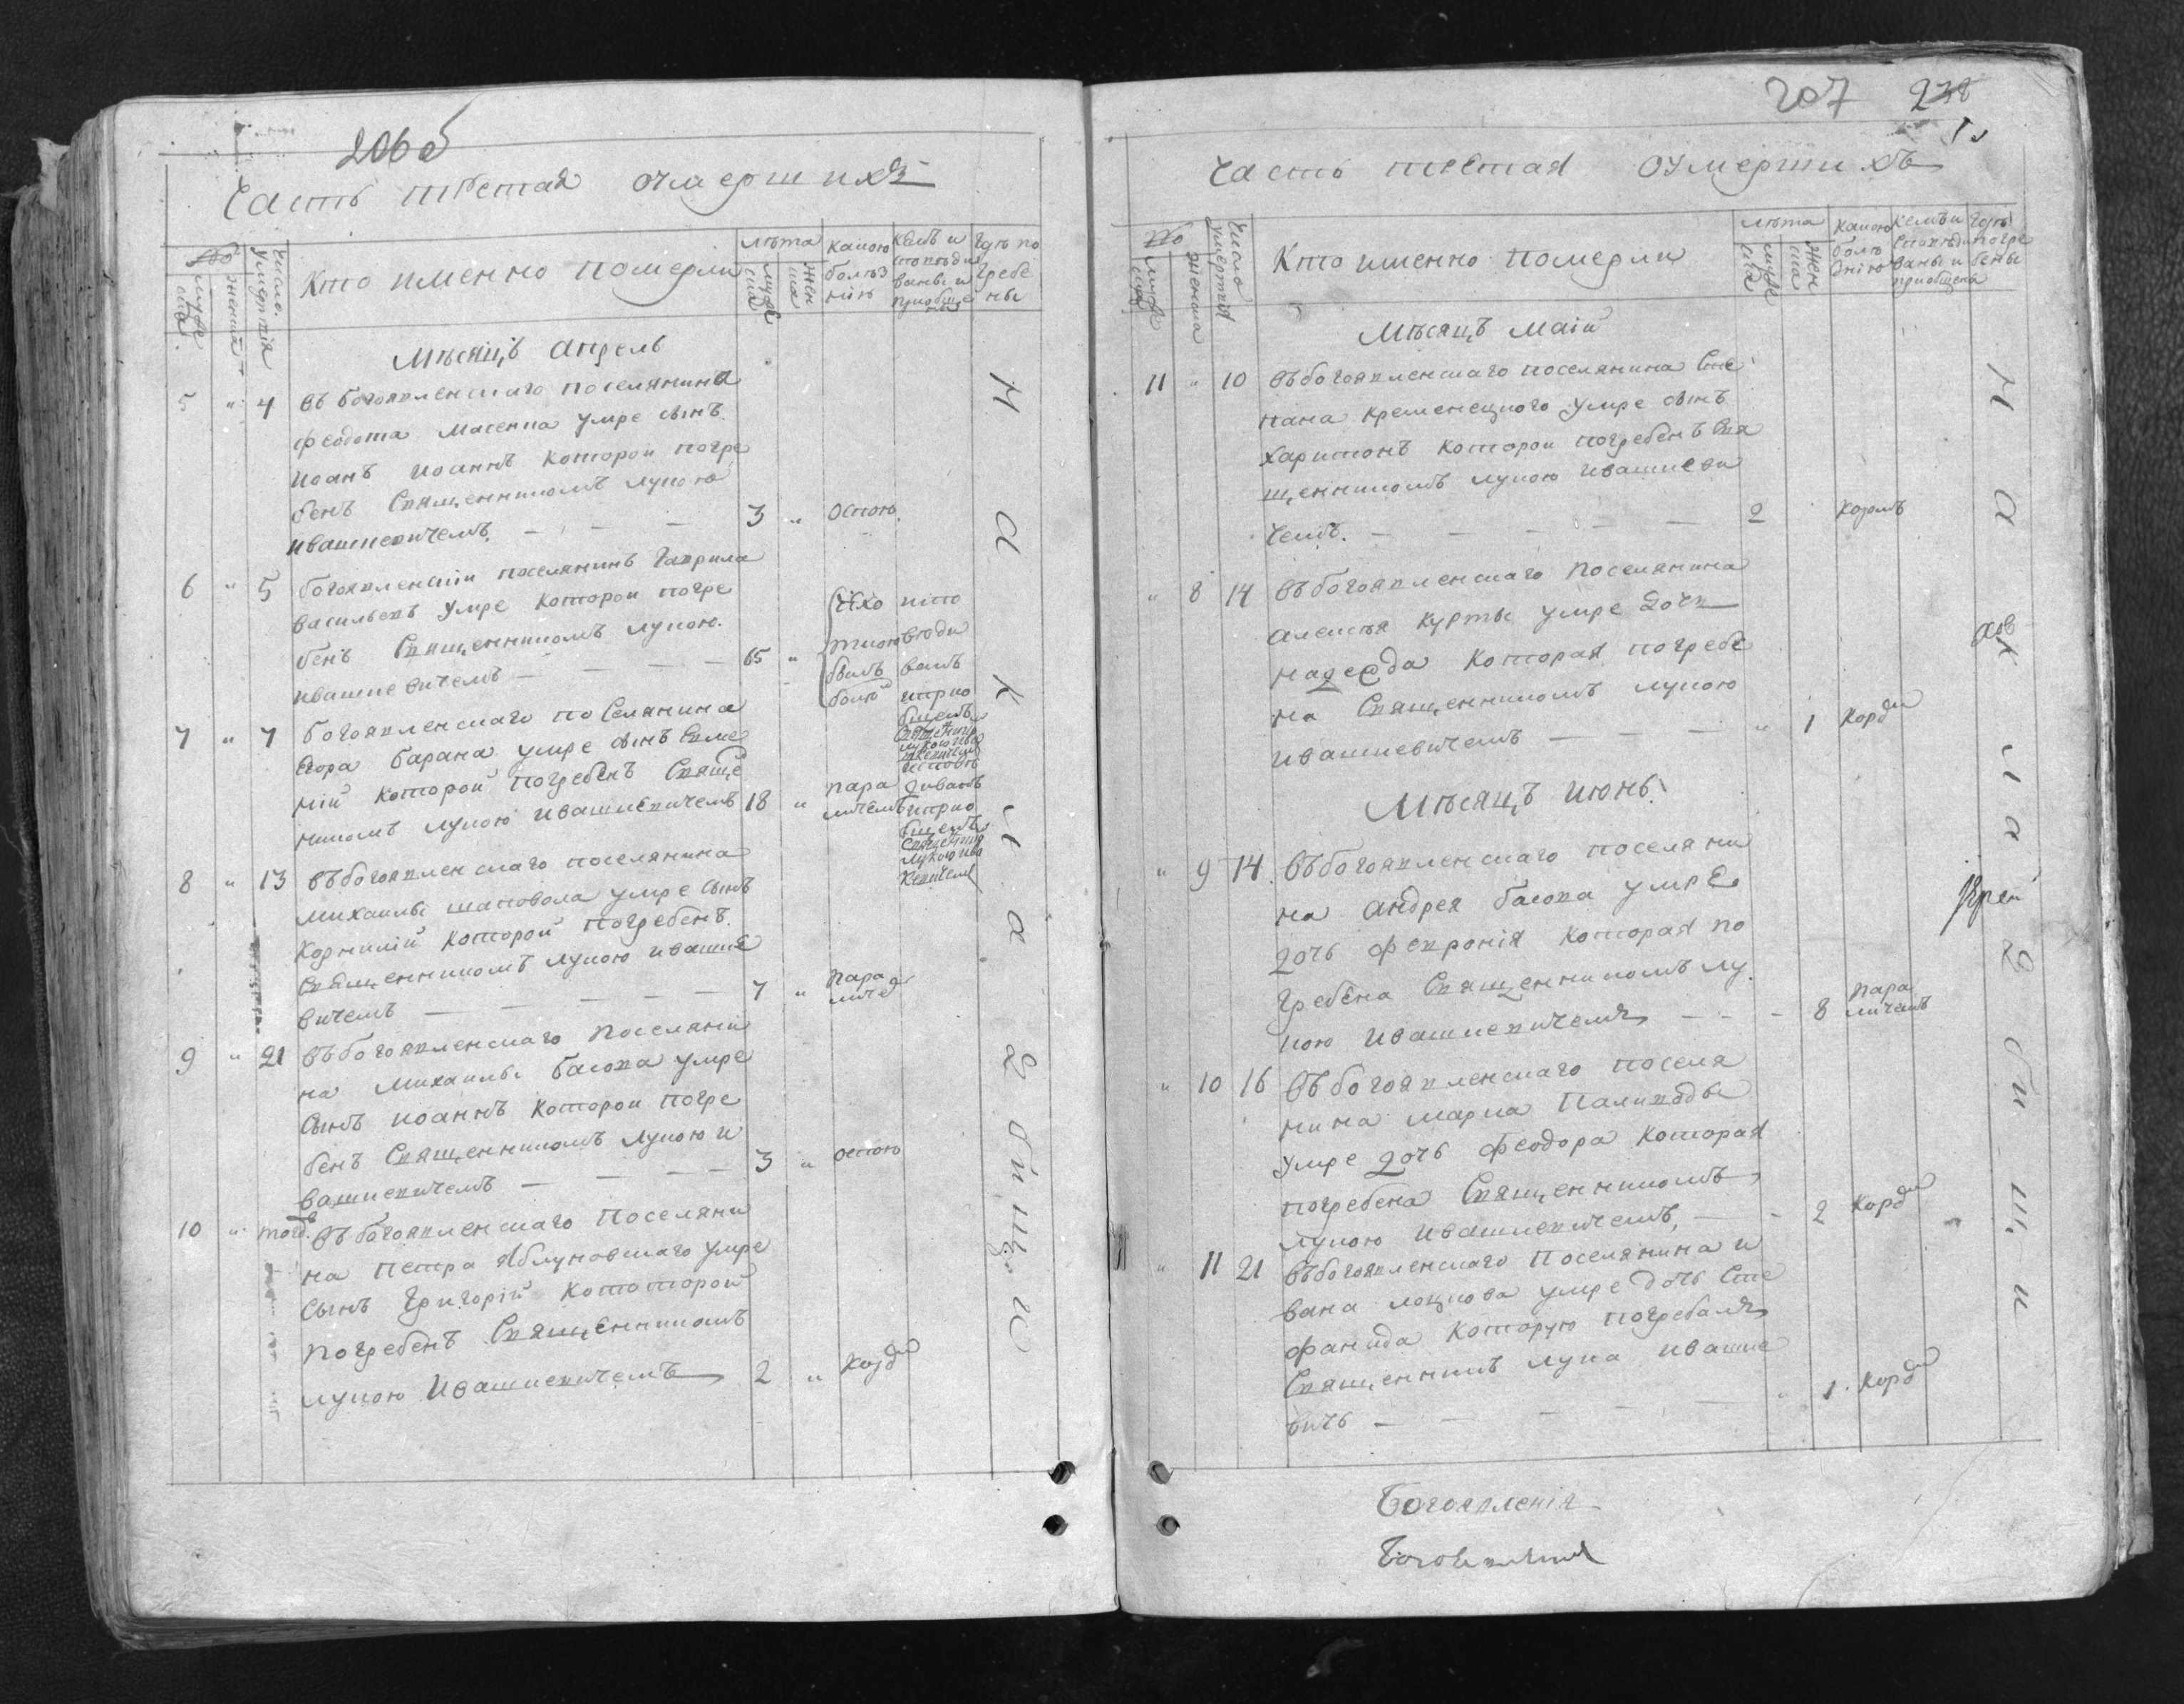 206 об
Часть третая оумершихъ
№
мужеска
женска
Число умертвія
Кто именно померли
лѣта
мужеска
женска
какою болѣзнію
кемъ исповѣдываны и приобщены
Гдѣ погребены
Мѣсяцъ Апрель
5 " 4 Въ богоявленскаго поселянина
феодота Масенка умре сынъ
иоанъ иоаннъ которой погре
бенъ Священникомъ лукою
ивашкевичемъ. — — — 3 " оспою
6 " 5 богоявленскій поселянинъ Гаврила
васильевъ умре которой погре
бенъ Священникомъ лукою
ивашкевичемъ — — — — 65 "
7 " 7 богоявленскаго поселянина
Егора барана умре сынъ Евме
ній которой погребенъ Свяще
никомъ лукою ивашкевичемъ 18 " пара
личемъ
8 " 13 Въ богоявленскаго поселянина
михаилы шаповола умре сынъ
Корнилій которой погребенъ
Священникомъ лукою ивашке
вичемъ — — — — 7 " пара
личе
9 " 21 Въ богоявленскаго поселяни
на михаилы басова умре
сынъ иоаннъ которой погре
бенъ Священникомъ лукою и
вашкевичемъ — — — 3 " оспою
10 " тогд Въ богоявленскаго поселяни
на петра Яблуновскаго умре
сынъ Григорій кототорой
погребенъ Священникомъ
лукою Ивашкевичемъ 2 " корд
На кладбищи
207 238
Часть третая оумершихъ
№
мужеска
женска
Число умертвія
Кто именно померли
лѣта
мужеска
женска
какою болѣзнію
кемъ исповѣдываны и приобщена
Гдѣ погребены
Мѣсяцъ Маій
11 " 10 Въ богоявленскаго поселянина Сте
пана кременецкого умре сынъ
Харитонъ которои погребенъ Свя
щенникомъ лукою ивашкеви
чемъ. — — — — — 2 коремъ
" 8 14 Въ богоявленскаго поселянина
алексѣя курты умре дочь
надежда которая погребе
на Священникомъ лукою
ивашкевичемъ — — — — " 1 корд
Мѣсяцъ июнь
" 9 14 Въ богоявленскаго поселяни
на андрея басова умре
дочь февронія которая по
гребена Священникомъ лу
кою ивашкевичемъ — — — 8 пара
личемъ
" 10 16 Въ богоявленскаго поселя
нина марка Паливоды
умре дочь феодора которая
погребена Священникомъ
лукою ивашкевичемъ, — — 2 корд
" 11 21 Въ богоявленскаго поселянина и
вана локцова умре дочь Сте
фанида которую погребалъ
Священникъ лука ивашке
вичь — — — — — " 1 корд
На кладбищи
Богоявленія